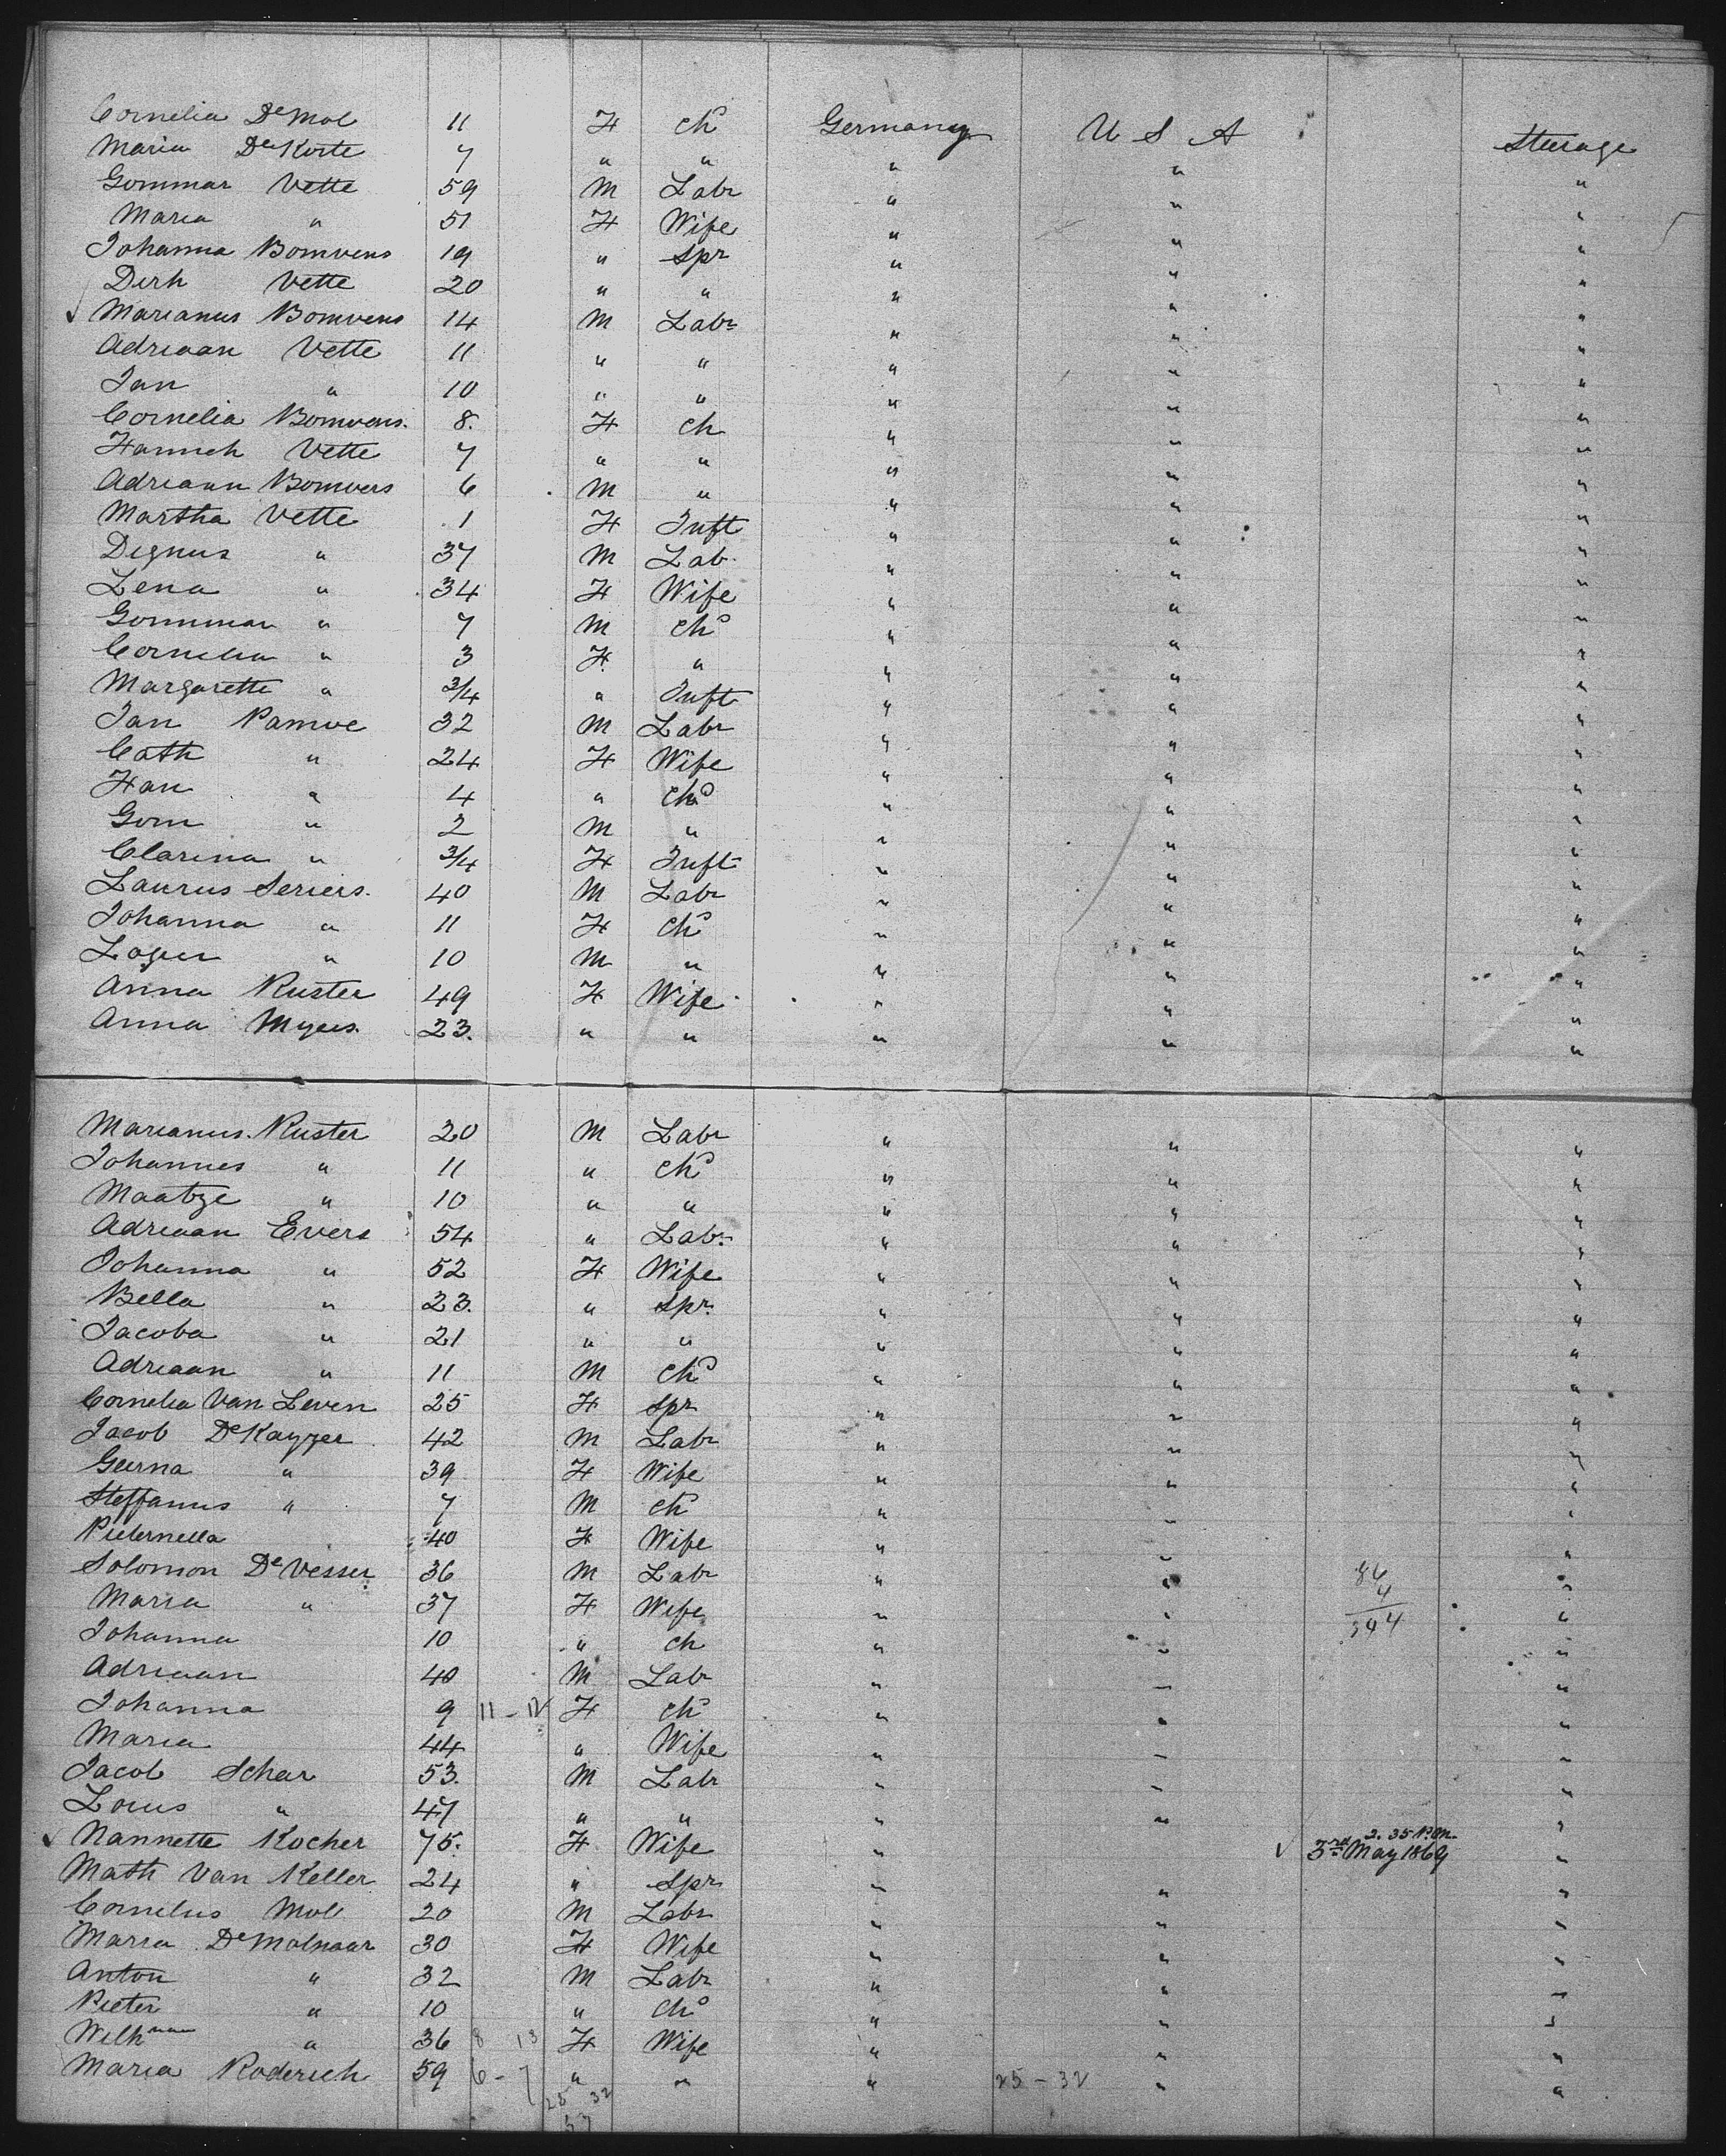 Cornelia De Mol 11 F ch Germany U S A Steerage
Maria De Korte 7 " " " " "
Gommar Vette 59 M Labr " " "
Maria " 51 F Wife " " "
Johanna Bomvens 19 " Spr " " "
Dirk Vette 20 " " " " "
✓ Marianus Bomvens 14 M Labr " " "
Adriaan Vette 11 " " " " "
Jan " 10 " " " " "
Cornelia Bomvens. 8. F ch " " "
Hannch Vette 7 " " " " "
Adriann Bomvers 6 M " " " "
Martha Vette 1 F Inft " " "
Dignus " 37 M Lab. " " "
Lena " 34 F Wife " " "
Gommar " 7 M chd " " "
Cornelia " 3 F " " " "
Margarette " 3/4 " Inft " " "
Jan Pamve 32 M Labr " " "
Cath " 24 F Wife " " "
Han " 4 " chd " " "
Gom " 2 M " " " "
Clarina " 3/4 F Inft " " "
Laurus Seriers. 40 M Labr " " "
Johanna " 11 F chd " " "
" 10 M " " " "
Anna Kuster 49 F Wife " " "
Anna Myers. 23. " " " " "
Marianus. Kuster 20 M Labr " " "
Johannes " 11 " chd " " "
Maatze " 10 " " " " "
Adriaan Evers 54 " Labr " " "
Johanna " 52 F Wife " " "
Bella " 23. " Spr. " " "
Jacoba " 21 " " " " "
Adriaan " 11 M chd " " "
Cornelia Van Leven 25 F Spr " " "
Jacob De Kayzer 42 M Labr " " "
Geerna " 39 F Wife " " "
Steffanus " 7 M chd " " "
Pieternella 40 F Wife " " "
Solomon De Vesser 36 M Labr " " 86 "
Maria " 37 F Wife " " 4 "
Johanna 10 " ch " " 344 "
Adriaan 40 M Labr " " "
Johanna 9 11 - 12 F chd " " "
Maria 44 " Wife " " "
Jacob Schar 53. M Labr " " "
Louis " 47 " " " " "
✓ Nannette Kocher 75. F Wife " ✓ 2. 35 P.M. 3rd May 1869 "
Math Van Keller 24 " Spr " " "
Cornelus Mol 20 M Labr " " "
Maria De Molnaar 30 F Wife " " "
Anton " 32 M Labr " " "
Pieter " 10 " chd " " "
Wilhmna " 36 8 13 F Wife " " "
Maria Roderich 59 6 - 7 " " " 25 - 32 " "
25 32
57